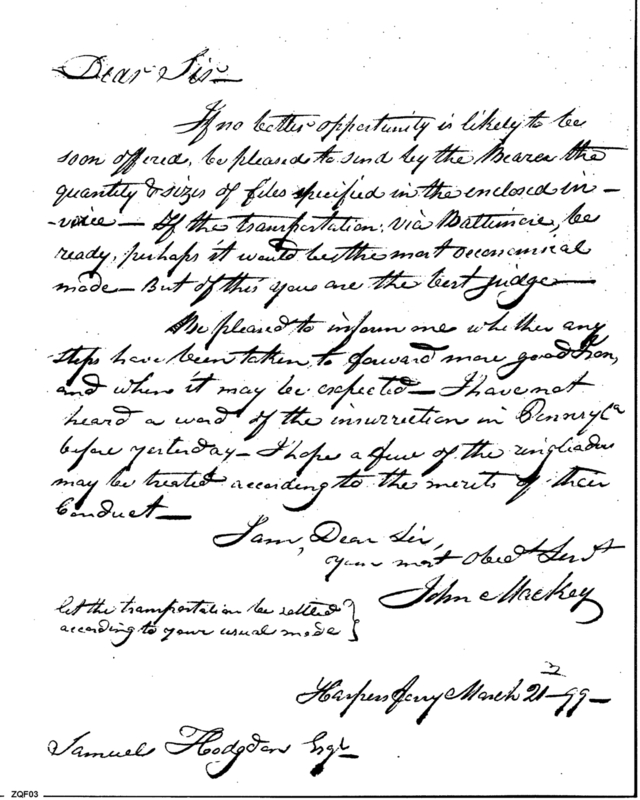 Dear Sir—
If no better opportunity is likely to be
soon offered, be pleased to send by the Bearer the
quantity & sizes of files specified in the enclosed in-
-voice — If the transportation, via Baltimore, be
ready, perhaps it would be the most oeconomical
mode — But of this you are the best judge —
Be pleased to inform me whether any
steps have been taken, to forward more good Iron,
and when it may be expected — I have not
heard a word of the insurrection in Pennsylᵃ
before yesterday — I hope a few of the ringleaders
may be treated according to the merits of their
Conduct —
I am, Dear Sir,
your most Obedᵗ Servᵗ
John Mackey
let the transportation be settled
according to your usual mode
Harpers Ferry March 21 — 99 —
Samuel Hodgdon Esqʳ
ZQF03